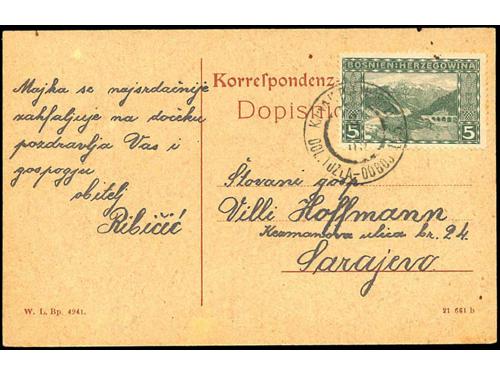 Majka se najsrdačnije
zahfaljuje na dočeku
pozdravlja Vas i
gospogju
obitelj
Ribičić
Korrespondenz-
Dopisnic
BOSNIEN:HERZEGOWINA
5 5
DOL. TUZLA-DOBOJ
Štovani gosp.
Villi Hoffmann
Kezmanova ulica br. 24.
Sarajevo
W. L. Bp. 4941.
21 661 b